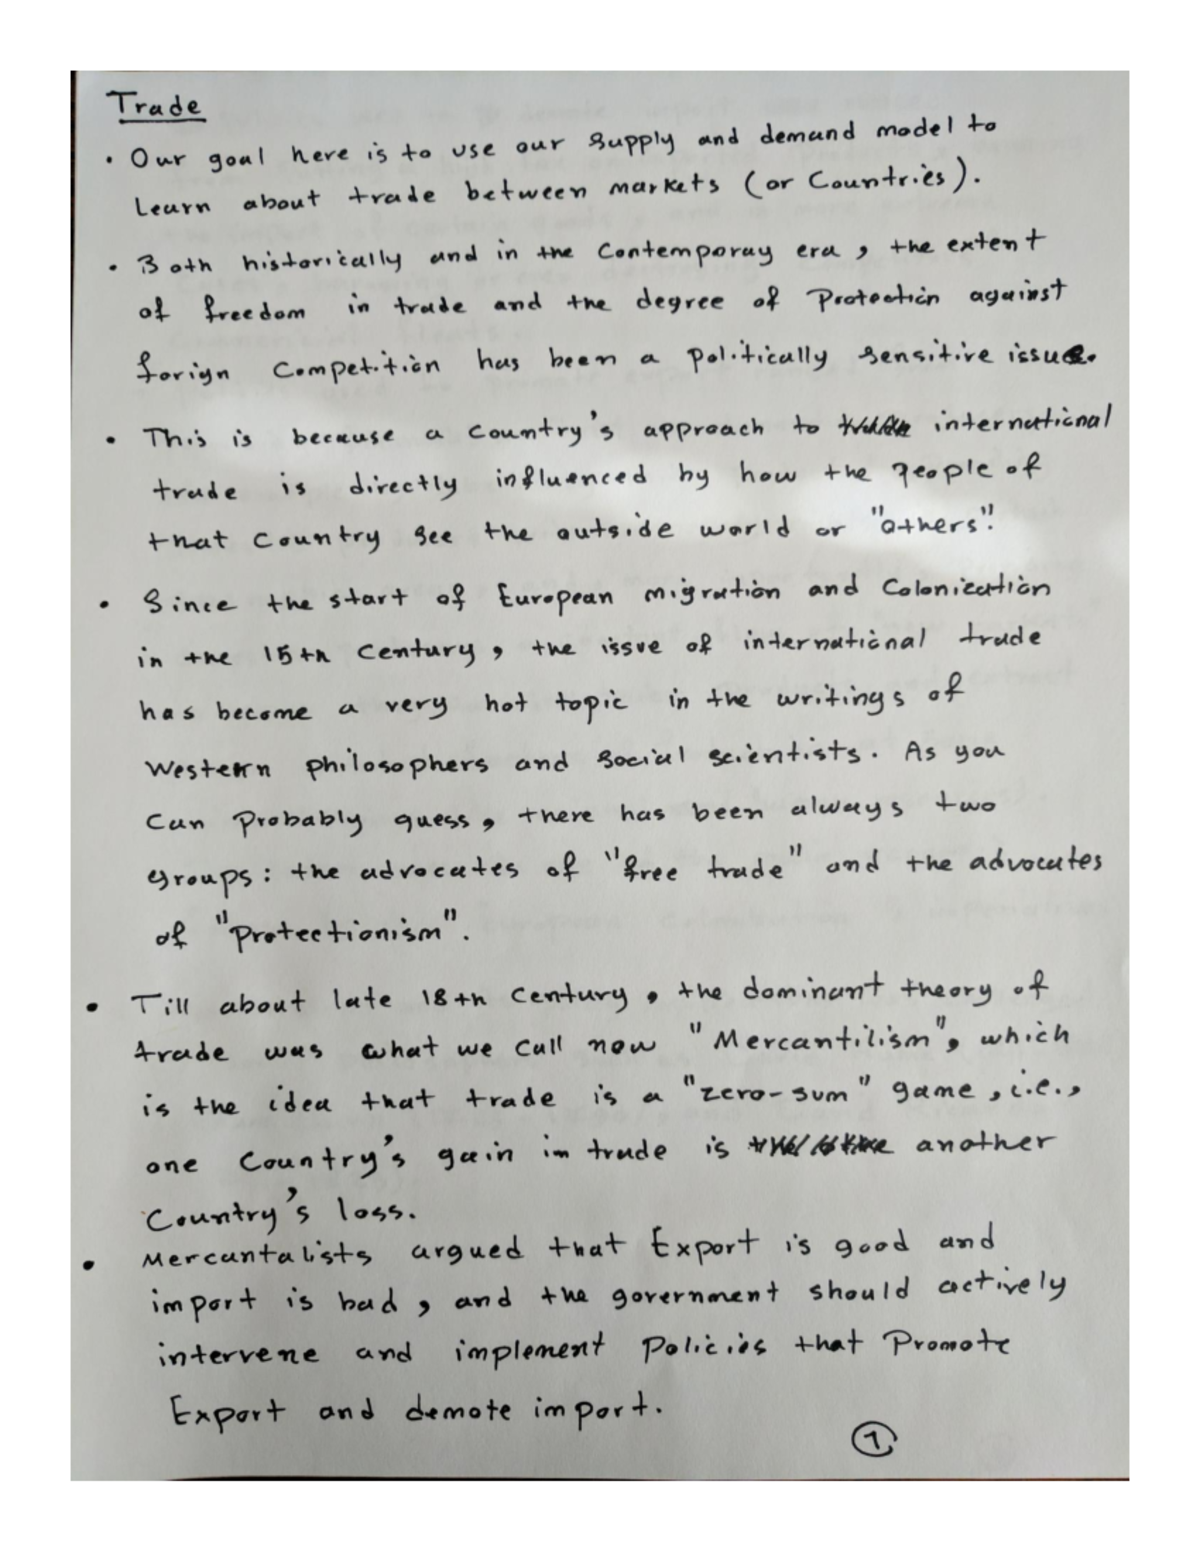 Trade
• Our goal here is to use our supply and demand model to
Learn about trade between markets (or Countries).
• Both historically and in the Contemporay era, the extent
of freedom in trade and the degree of Protection against
forign Competition has been a politically sensitive issue.
• This is because a Country's approach to international
trade is directly influenced by how the people of
that Country see the outside world or "others".
• Since the start of European migration and Colonization
in the 15th Century, the issue of international trade
has become a very hot topic in the writings of
Western philosophers and social scientists. As you
Can Probably guess, there has been always two
groups: the advocates of "free trade" and the advocates
of "Protectionism".
• Till about late 18th Century, the dominant theory of
trade was what we call now "Mercantilism", which
is the idea that trade is a "zero-sum" game, i.e.,
one Country's gain in trade is another
Country's loss.
• Mercantalists argued that Export is good and
import is bad, and the government should actively
intervene and implement Policies that Promote
Export and demote import.
1